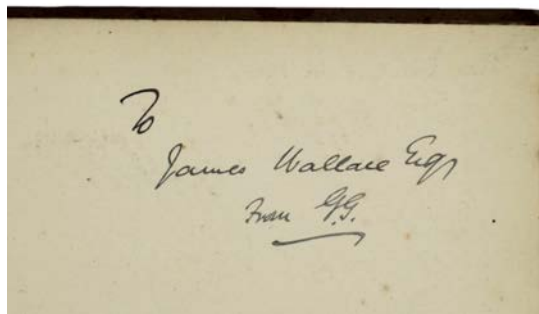 To
James Wallace Esqr
From G.G.